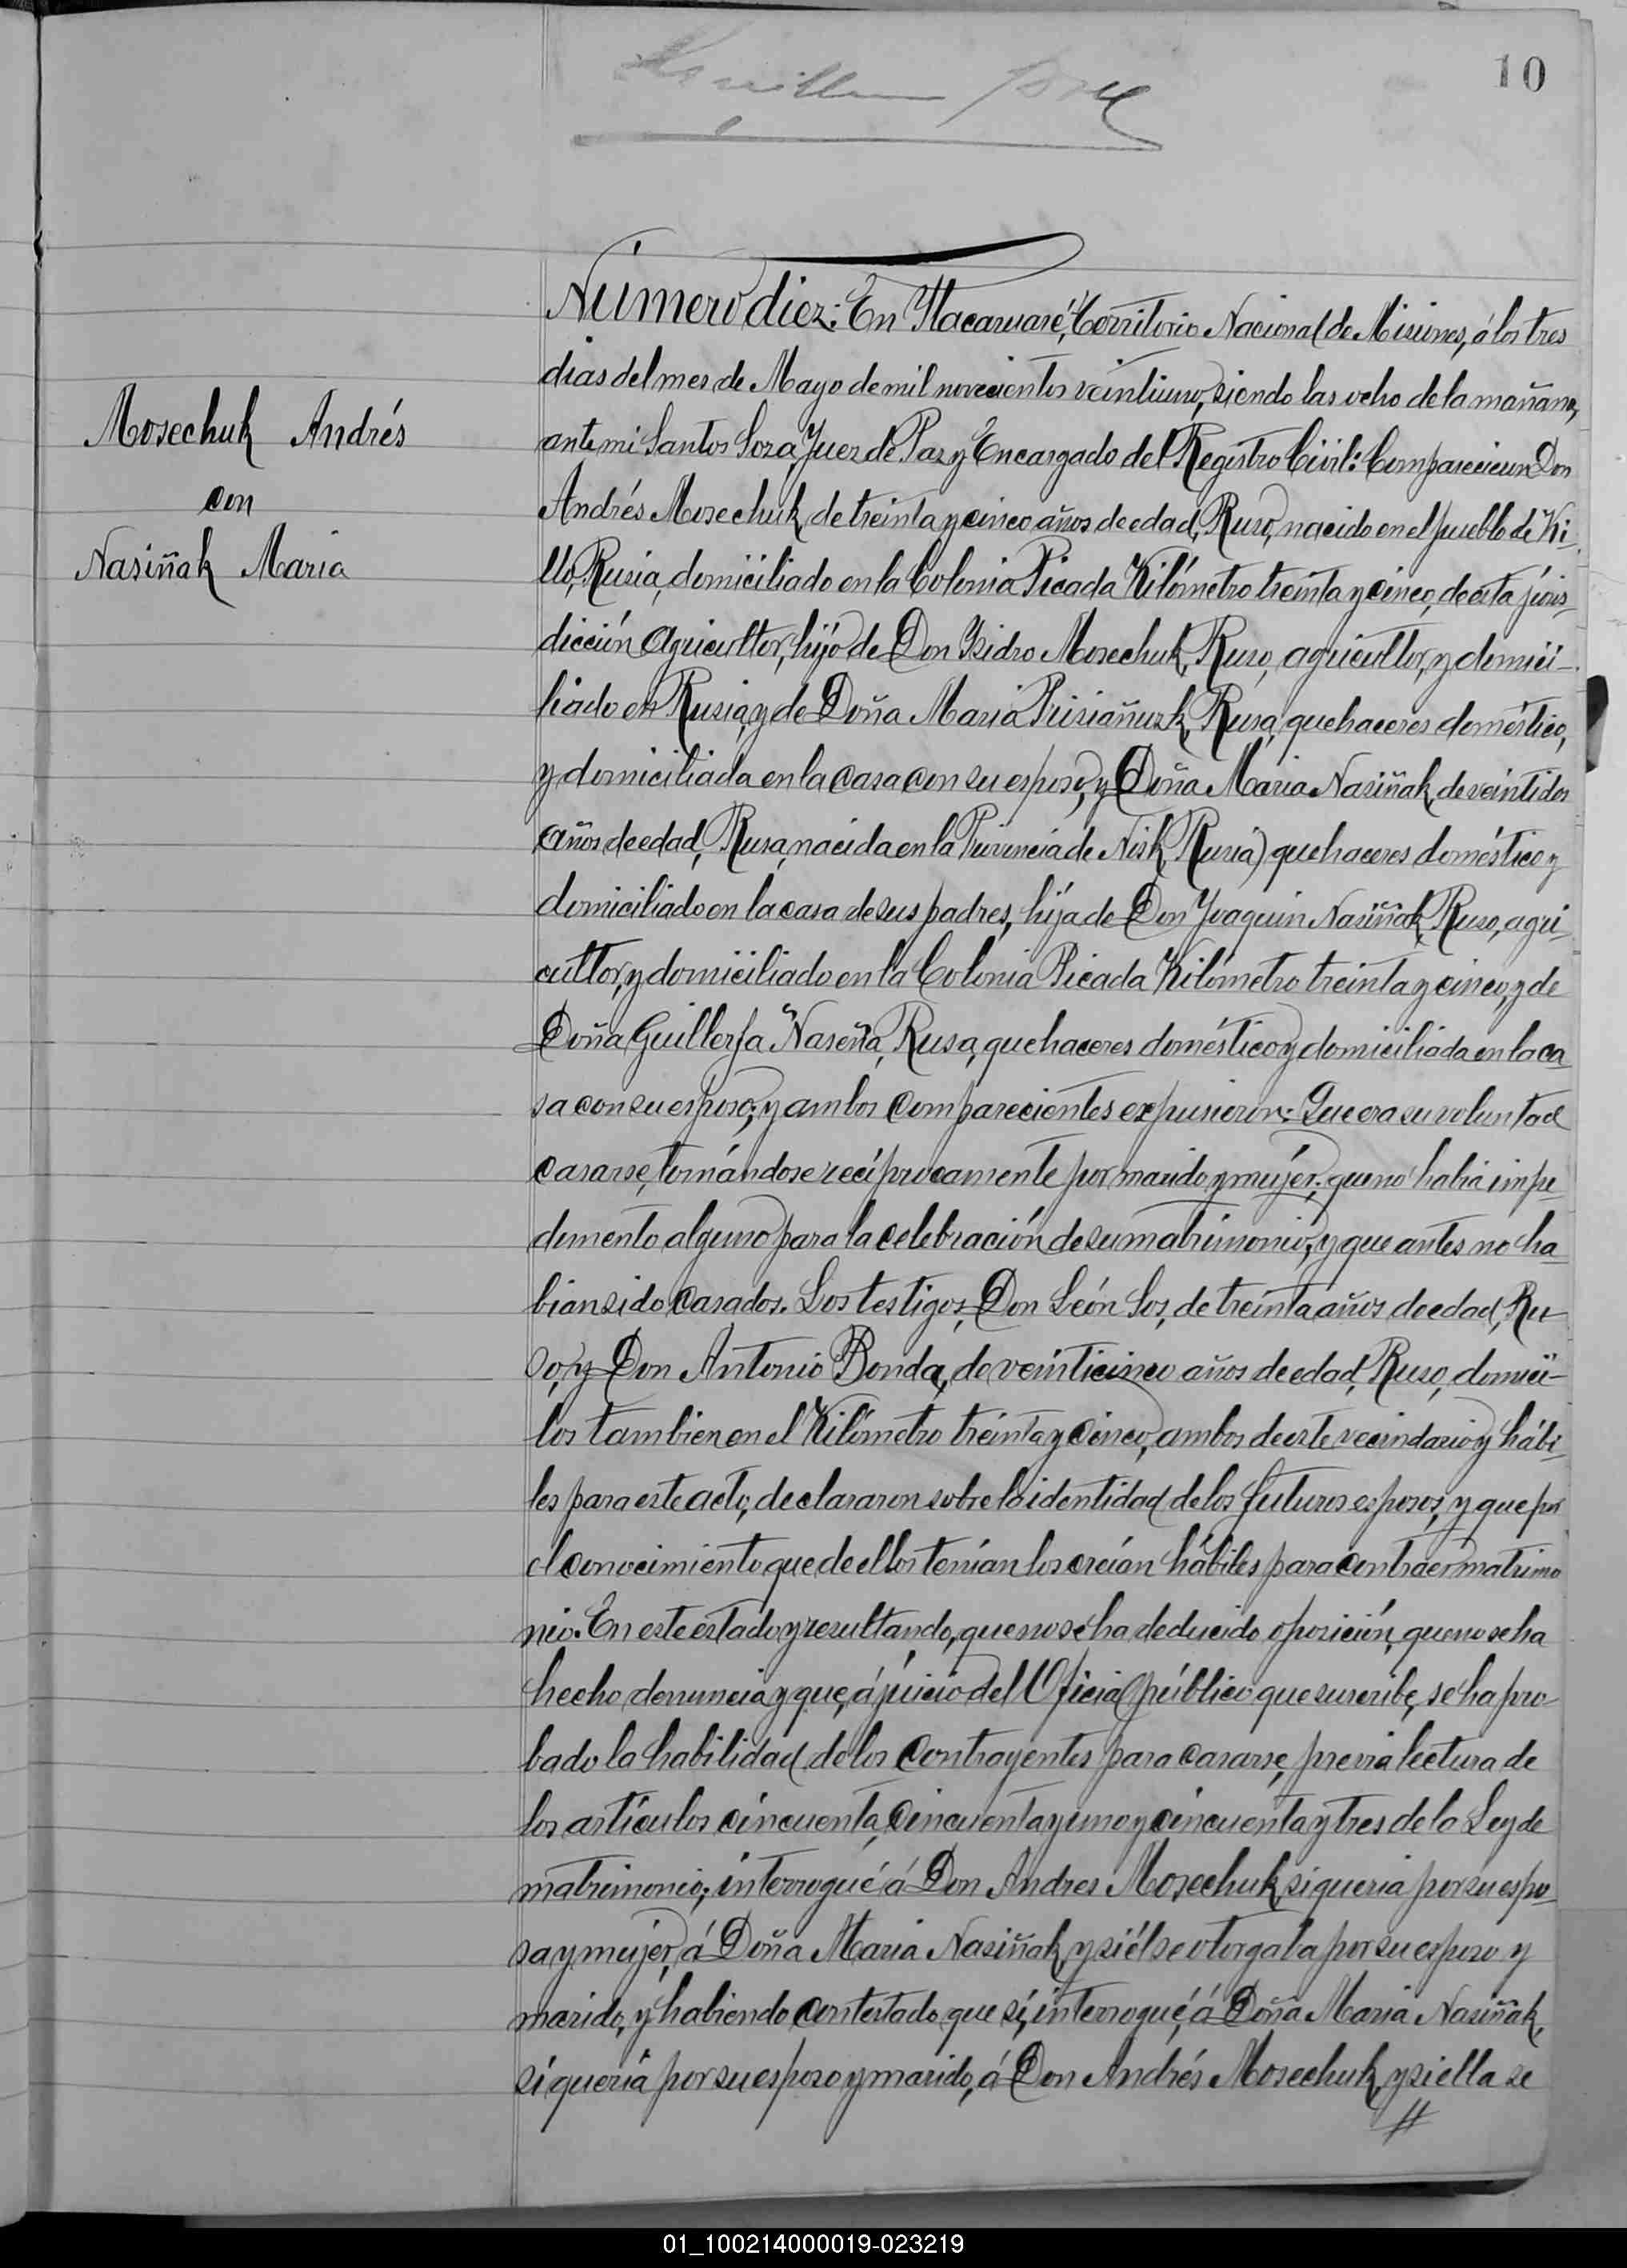 10
Número diez: En Itacaruaré, Territorio Nacional de Misiones, á los tres
dias del mes de Mayo de mil novecientos veintiuno, siendo las ocho de la mañana,
Mosechuk Andrés
con
Nasiñak Maria
ante mi Santos Soza, Juez de Paz y Encargado del Registro Civil: Comparecieron Don
Andrés Mosechuk, de treinta y cinco años de edad, Ruso, nacido en el pueblo de Ki-
llo, Rusia, domiciliado en la Colonia Picada Kilómetro treinta y cinco, de esta júris-
dicción Agricultor, hijo de Don Ysidro Mosechuk, Ruso, agricultor, y domici-
liado en Rusia, y de Doña Maria Prisiañuzk, Rusa, quehaceres doméstico,
y domiciliada en la casa con su esposo, y Doña Maria Nasiñak, de veintidos
años de edad, Rusa, nacida en la Privincia de Nisk, Rusia) quehaceres doméstico y
domiciliado en la casa de sus padres, hija de Don Joaquin Nasiñak, Ruso, agri-
cultor, y domiciliado en la Colonia Picada Kilómetro treinta y cinco, y de
Doña Guillerfa Naseña, Rusa, quehaceres doméstico y domiciliada en la ca
sa con su esposo; y ambos comparecientes expusieron: Que era su voluntad
casarse, tomándose recíprocamente por marido y mujer; que no habia impe-
dimento alguno para la celebración de su matrimonio; y que antes no ha-
bian sido casados. Los testigos, Don León Sos, de treinta años de edad, Ru-
so, y Don Antonio Bonda, de veinticinco años de edad, Ruso, domici-
los tambien en el Kilómetro treinta y cinco, ambos de este vecindario y hábi-
les para este acto, declararon sobre la identidad de los futuros esposos, y que por
el conocimiento que de ellos tenían los creían hábiles para contraer matrimo
nio. En este estado y resultando, que no se ha deducido oposición, que no se ha
hecho denuncia y que, á júicio del Oficial público que suscribe, se ha pro-
bado la habilidad de los contrayentes para casarse, previa lectura de
los artículos cincuenta, cincuenta y uno y cincuenta y tres de la Ley de
matrimonio; interrogué á Don Andres Mosechuk si queria por su espo-
sa y mujer, á Doña Maria Nasiñak, y si él se otorgaba por su esposo y
marido, y habiendo contestado que sí, interrogué, á Doña Maria Nasiñak,
si quería por su esposo y marido, á Don Andrés Mosechuk, y si ella se
//
01_100214000019-023219